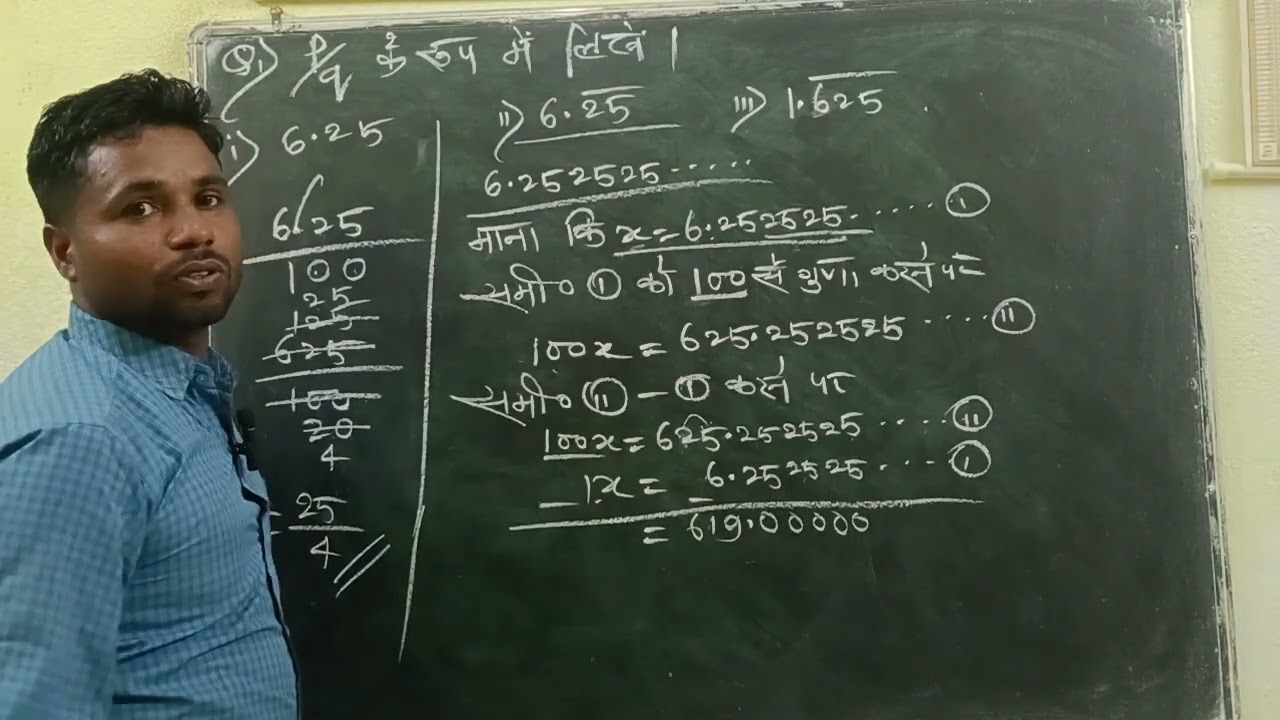 Q1) P/q के रूप में लिखें।
i) 6.25
6.25
100
25
125
625
100
20
4
= 25
4
ii) 6.2̅5̅
iii) 1.6̅2̅5̅
6.252525......
माना कि x = 6.252525...... (I)
समी० (I) को 100 से गुणा करने पर
100x = 625.252525 .... (II)
समी० (II) - (I) करने पर
100x = 625.252525 .... (II)
- 1x = - 6.252525 .... (I)
= 619.00000